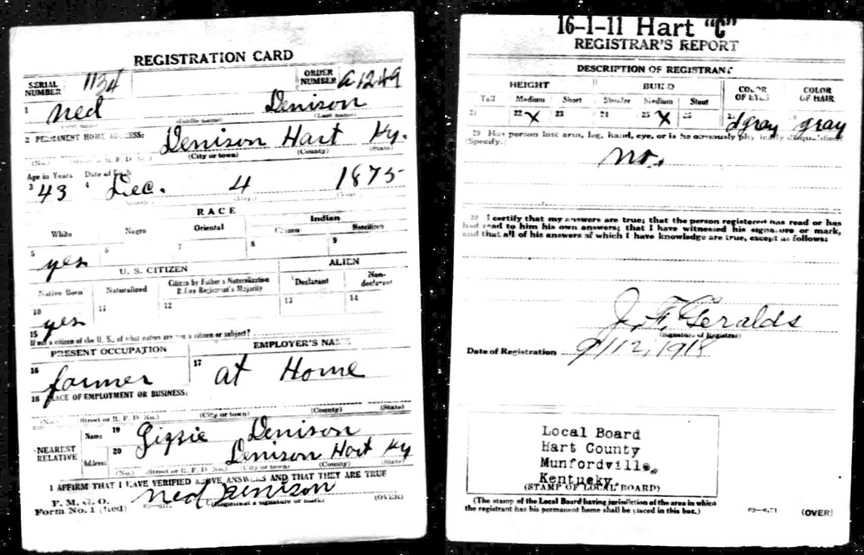 REGISTRATION CARD
SERIAL NUMBER 1134 ORDER NUMBER A1249
1 Ned Denison
(Middle name) (Last name)
2 PERMANENT HOME ADDRESS: Denison Hart Ky.
(No.) R. F. D. No.) (City or town) (County) (State)
Age in Years Date of Birth
3 43 4 Dec. 4 1875
RACE
White Negro Oriental Indian
Citizen Noncitizen
5 6 7 8 9
yes
U. S. CITIZEN ALIEN
Native Born Naturalized Citizen by Father's Naturalization Before Registrant's Majority Declarant Non-declarant
10 11 12 13 14
yes
15 If not a citizen of the U. S., of what nation are you a citizen or subject?
PRESENT OCCUPATION EMPLOYER'S NAME
16 farmer 17 at Home
18 PLACE OF EMPLOYMENT OR BUSINESS:
(No.) Street or R. F. D. No.) (City or town) (County) (State)
NEAREST RELATIVE Name 19 Denison
Address 20 Denison Hart Ky
(No.) (Street or R. F. D. No.) (City or town) (County) (State)
I AFFIRM THAT I HAVE VERIFIED ABOVE ANSWERS AND THAT THEY ARE TRUE
P. M. G. O.
Form No. 1 (Red) Ned Denison
(Registrant's signature or mark) (OVER)
16-1-11 Hart "C"
REGISTRAR'S REPORT
DESCRIPTION OF REGISTRANT
HEIGHT BUILD COLOR OF EYES COLOR OF HAIR
Tall Medium Short Slender Medium Stout
21 22 X 23 24 25 X 26 gray gray
29 Has person lost arm, leg, hand, eye, or is he obviously physically disqualified?
(Specify.)
no.
30 I certify that my answers are true; that the person registered has read or has
had read to him his own answers; that I have witnessed his signature or mark,
and that all of his answers of which I have knowledge are true, except as follows:
J. F. Geralds
(Signature of Registrar)
Date of Registration 9/12, 1918
Local Board
Hart County
Munfordville,
Kentucky.
(STAMP OF LOCAL BOARD)
(The stamp of the Local Board having jurisdiction of the area in which
the registrant has his permanent home shall be placed in this box.)
(OVER)